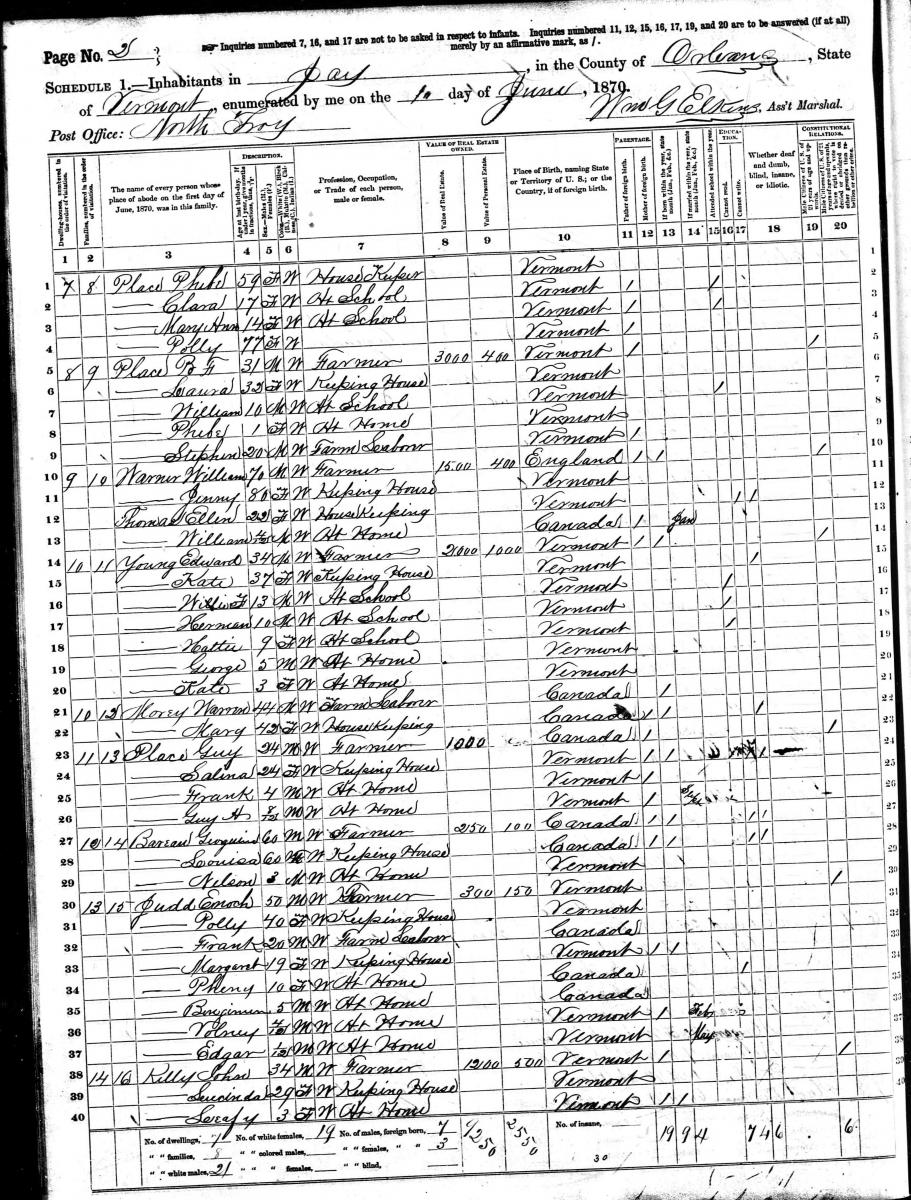 ☞ Inquiries numbered 7, 16, and 17 are not to be asked in respect to infants. Inquiries numbered 11, 12, 15, 16, 17, 19, and 20 are to be answered (if at all)
merely by an affirmative mark, as /.
Page No. 2
SCHEDULE 1.—Inhabitants in Jay, in the County of Orleans, State
of Vermont, enumerated by me on the 1 day of June, 1870.
Wm G Elkins, Ass't Marshal.
Post Office: North Troy
Dwelling-houses, numbered in the order of visitation.
Families, numbered in the order of visitation.
The name of every person whose place of abode on the first day of June, 1870, was in this family.
DESCRIPTION.
Profession, Occupation, or Trade of each person, male or female.
VALUE OF REAL ESTATE OWNED.
Value of Real Estate.
Value of Personal Estate.
Place of Birth, naming State or Territory of U. S.; or the Country, if of foreign birth.
PARENTAGE.
Father of foreign birth.
Mother of foreign birth.
EDUCATION.
Attended school within the year.
Cannot read.
Cannot write.
Whether deaf and dumb, blind, insane, or idiotic.
CONSTITUTIONAL RELATIONS.
1 2 3 4 5 6 7 8 9 10 11 12 13 14 15 16 17 18 19 20
1 7 8 Place Phebe 59 F W House Keeper Vermont
2 — Clara 17 F W At School Vermont / /
3 — Mary Ann 14 F W At School Vermont / /
4 — Polly 77 F W Vermont /
5 8 9 Place B F 31 M W Farmer 3000 400 Vermont / /
6 — Laura 32 F W Keeping House Vermont
7 — William 10 M W At School Vermont /
8 — Phebe 1 F W At Home Vermont
9 — Stephen 20 M W Farm Labourer Vermont /
10 9 10 Warner William 70 M W Farmer 1500 400 England / / /
11 — Jenny 80 F W Keeping House Vermont
12 Thomas Ellen 22 F W House Keeping Vermont / /
13 — William M W At Home Canada / Jan
14 10 11 Young Edward 34 M W Farmer 2000 1000 Vermont / / /
15 — Kate 37 F W Keeping House Vermont /
16 — Willie F 13 M W At School Vermont /
17 — Herman 10 M W At School Vermont /
18 — Hattie 9 F W At School Vermont /
19 — George 5 M W At Home Vermont
20 — Kate 3 F W At Home Vermont
21 10 12 Morey Warren 44 M W Farm Labourer Canada /
22 — Mary 42 F W House Keeping Canada / / /
23 11 13 Place Guy 24 M W Farmer 1000 Canada / /
24 — Salina 24 F W Keeping House Vermont / /
25 — Frank 4 M W At Home Vermont /
26 — Guy A 8/12 M W At Home Vermont /
27 12 14 Bareau 60 M W Farmer 250 100 Canada / / / /
28 — Louisa 60 F W Keeping House Canada / / / /
29 — Nelson 3 M W At Home Vermont
30 13 15 Judd Enoch 50 M W Farmer 300 150 Vermont /
31 — Polly 40 F W Keeping House Vermont
32 — Frank 20 M W Farm Labourer Canada
33 — Margaret 19 F W Keeping House Vermont / /
34 — Pheny 10 F W At Home Canada /
35 — Benjimen 5 M W At Home Canada
36 — Volney M W At Home Vermont / Feb
37 — Edgar 1/12 M W At Home Vermont May
38 14 16 Killy John 34 M W Farmer 1200 500 Vermont / /
39 — Lucinda 29 F W Keeping House Vermont
40 — 3 F W At Home Vermont / /
No. of dwellings, 7 No. of white females, 19 No. of males, foreign born, 7 9250 2550 No. of insane, 19 9 4 7 4 6 6
" " families, 8 " " colored males, — " " females, " " 3
" " white males, 21 " " " females, — " " blind, — 30